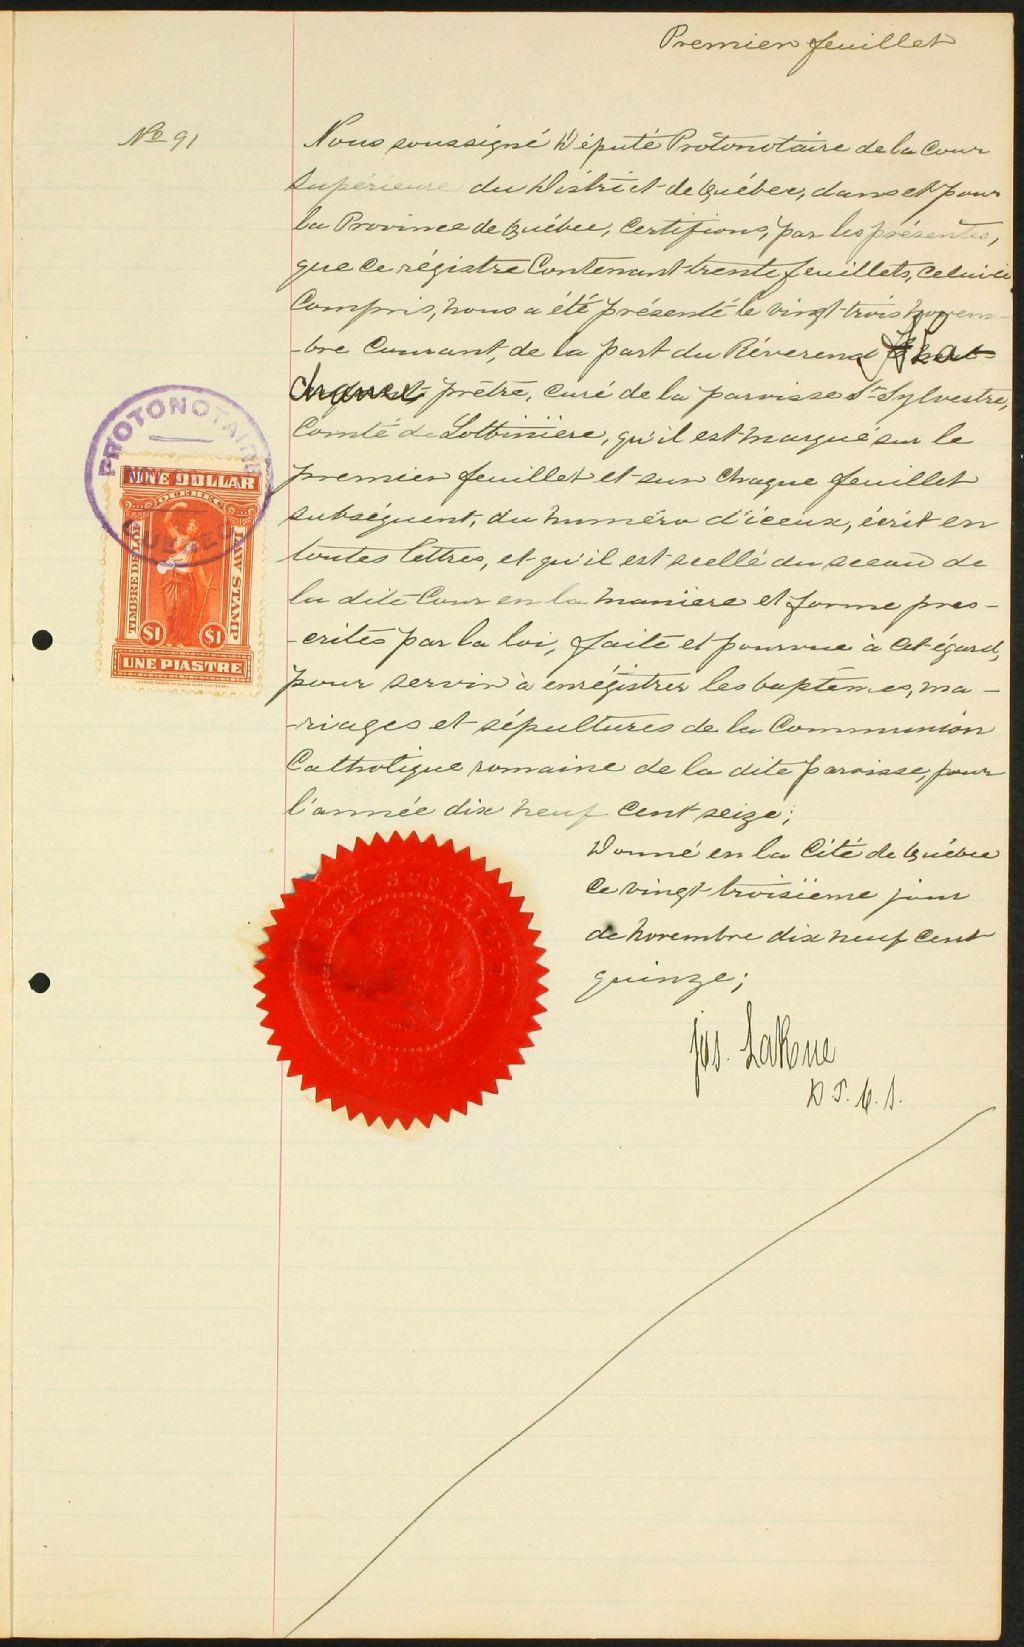 Premier feuillet
No 91
Nous soussigné Député Protonotaire de la Cour
Supérieure du District de Québec, dans et pour
la Province de Québec, Certifions, par les présentes,
que ce régistre Contenant trente feuillets, celui ci
Compris, nous a été présenté le vingt trois novem-
-bre Courant, de la part du Révérend
prêtre, curé de la paroisse St Sylvestre,
Comté de Lotbinière, qu'il est marqué sur le
premier feuillet et sur chaque feuillet
subséquent, du numéro d'iceux, écrit en
toutes lettres, et qu'il est scellé du sceau de
la dite Cour en la manière et forme pres-
-crites par la loi, faite et pourvue à cet égard,
pour servir à enrégistrer les baptêmes, ma-
-riages et sépultures de la Communion
Catholique romaine de la dite paroisse, pour
l'année dix neuf cent seize;
Donné en la Cité de Québec
ce vingt troisième jour
de novembre dix neuf cent
quinze;
Jos. LaRue
D. P. C. S.
PROTONOTAIRE
QUEBEC
ONE DOLLAR
QUEBEC
TIMBRE DE LOI
LAW STAMP
$1 $1
UNE PIASTRE